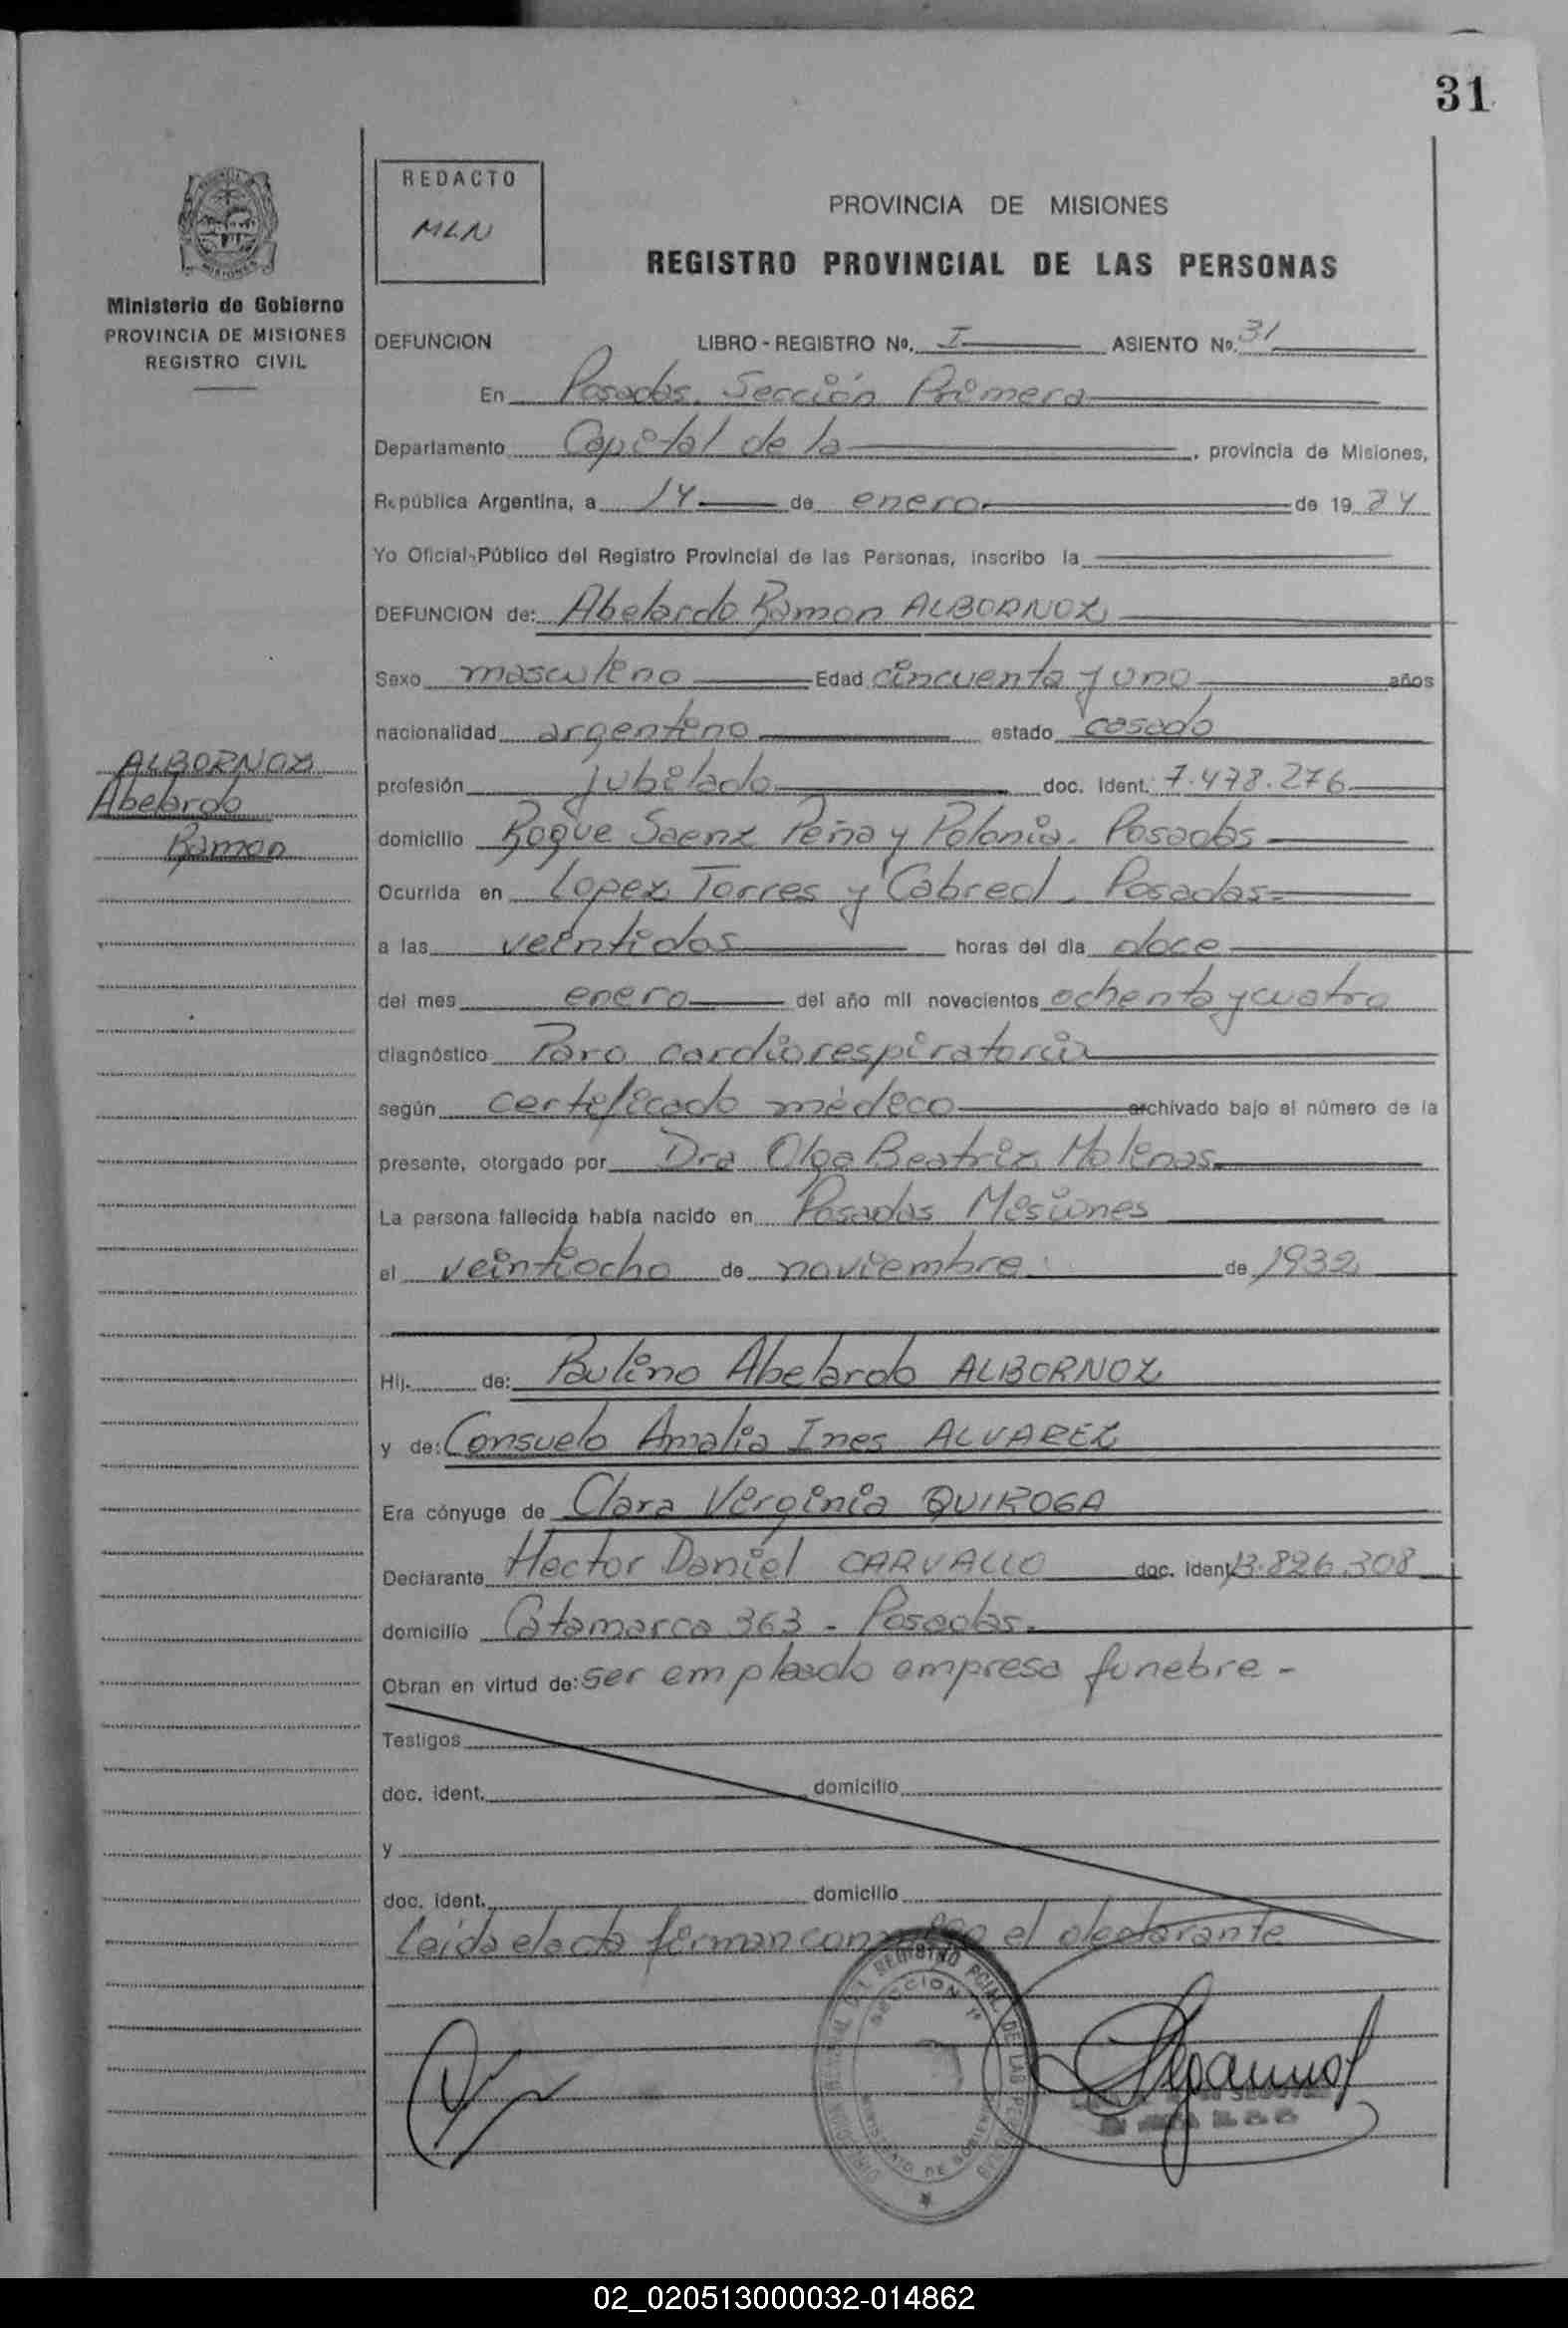 31
REDACTO
MLN
PROVINCIA DE MISIONES
REGISTRO PROVINCIAL DE LAS PERSONAS
MISIONES
Ministerio de Gobierno
PROVINCIA DE MISIONES
REGISTRO CIVIL
DEFUNCION LIBRO - REGISTRO No. I ASIENTO No. 31
En Posadas, Sección Primera
Departamento Capital de la , provincia de Misiones,
República Argentina, a 14 de enero de 1984
Yo Oficial Público del Registro Provincial de las Personas, inscribo la
DEFUNCION de: Abelardo Ramon ALBORNOZ
Sexo masculino Edad cincuenta y uno años
nacionalidad argentino estado casado
ALBORNOZ
Abelardo
Ramon
profesión jubilado doc. ident. 7.478.276
domicilio Roque Saenz Peña y Polonia. Posadas
Ocurrida en Lopez Torres y Cabred, Posadas
a las veintidos horas del día doce
del mes enero del año mil novecientos ochenta y cuatro
diagnóstico Paro cardiorespiratorio
según certificado médico archivado bajo el número de la
presente, otorgado por Dra Olga Beatriz Molinas
La persona fallecida había nacido en Posadas Misiones
el veintiocho de noviembre de 1932
Hij de: Paulino Abelardo ALBORNOZ
y de: Consuelo Amalia Ines ALVAREZ
Era cónyuge de Clara Virginia QUIROGA
Declarante Hector Daniel CARVALLO doc. ident. 13.826.308
domicilio Catamarca 363 - Posadas.
Obran en virtud de: ser empleado empresa funebre -
Testigos
doc. ident. domicilio
y
doc. ident. domicilio
Leida el acta firman conmigo el declarante
REGISTRO PCIAL. DE LAS PERSONAS
SECCION 1ª
MINISTERIO DE GOBIERNO
02_020513000032-014862